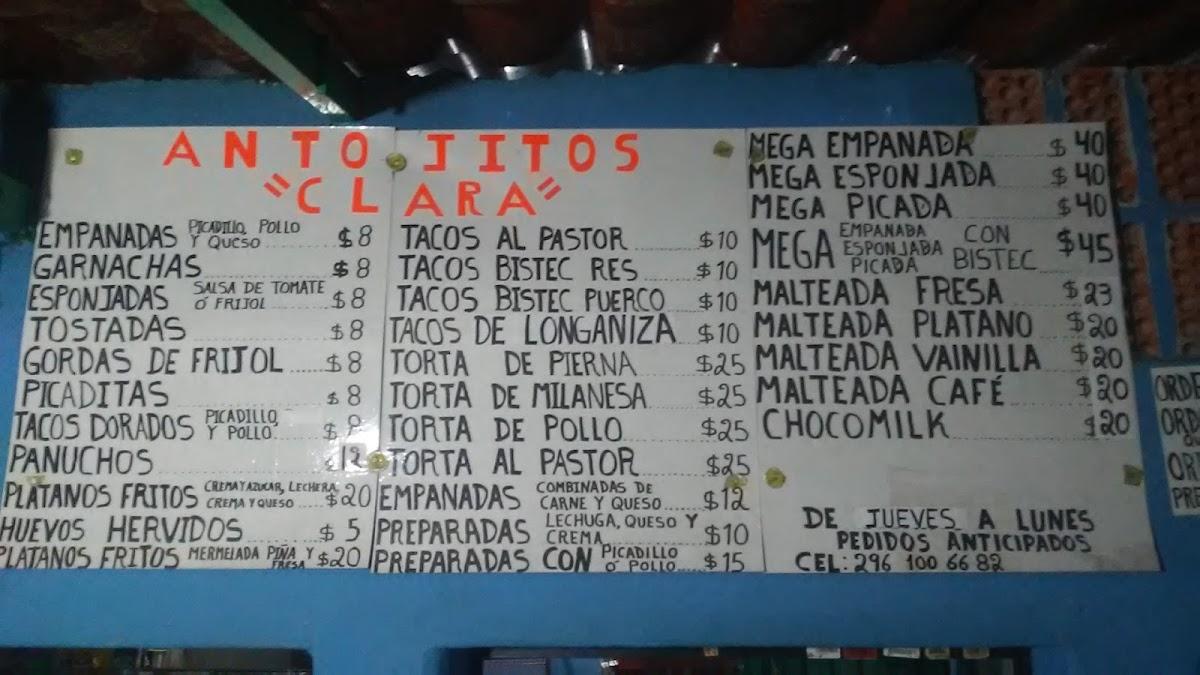 ANTOJITOS
"CLARA"
EMPANADAS PICADILLO, POLLO Y QUESO $8
GARNACHAS $8
ESPONJADAS SALSA DE TOMATE Ó FRIJOL $8
TOSTADAS $8
GORDAS DE FRIJOL $8
PICADITAS $8
TACOS DORADOS PICADILLO, Y POLLO $8
PANUCHOS $12
PLATANOS FRITOS CREMA Y AZUCAR, LECHERA, CREMA Y QUESO $20
HUEVOS HERVIDOS $5
PLATANOS FRITOS MERMELADA PIÑA Y FRESA $20
TACOS AL PASTOR $10
TACOS BISTEC RES $10
TACOS BISTEC PUERCO $10
TACOS DE LONGANIZA $10
TORTA DE PIERNA $25
TORTA DE MILANESA $25
TORTA DE POLLO $25
TORTA AL PASTOR $25
EMPANADAS COMBINADAS DE CARNE Y QUESO $12
PREPARADAS LECHUGA, QUESO Y CREMA $10
PREPARADAS CON PICADILLO Ó POLLO $15
MEGA EMPANADA $40
MEGA ESPONJADA $40
MEGA PICADA $40
MEGA EMPANADA ESPONJADA PICADA CON BISTEC $45
MALTEADA FRESA $23
MALTEADA PLATANO $20
MALTEADA VAINILLA $20
MALTEADA CAFÉ $20
CHOCOMILK $20
DE JUEVES A LUNES
PEDIDOS ANTICIPADOS
CEL: 296 100 66 82